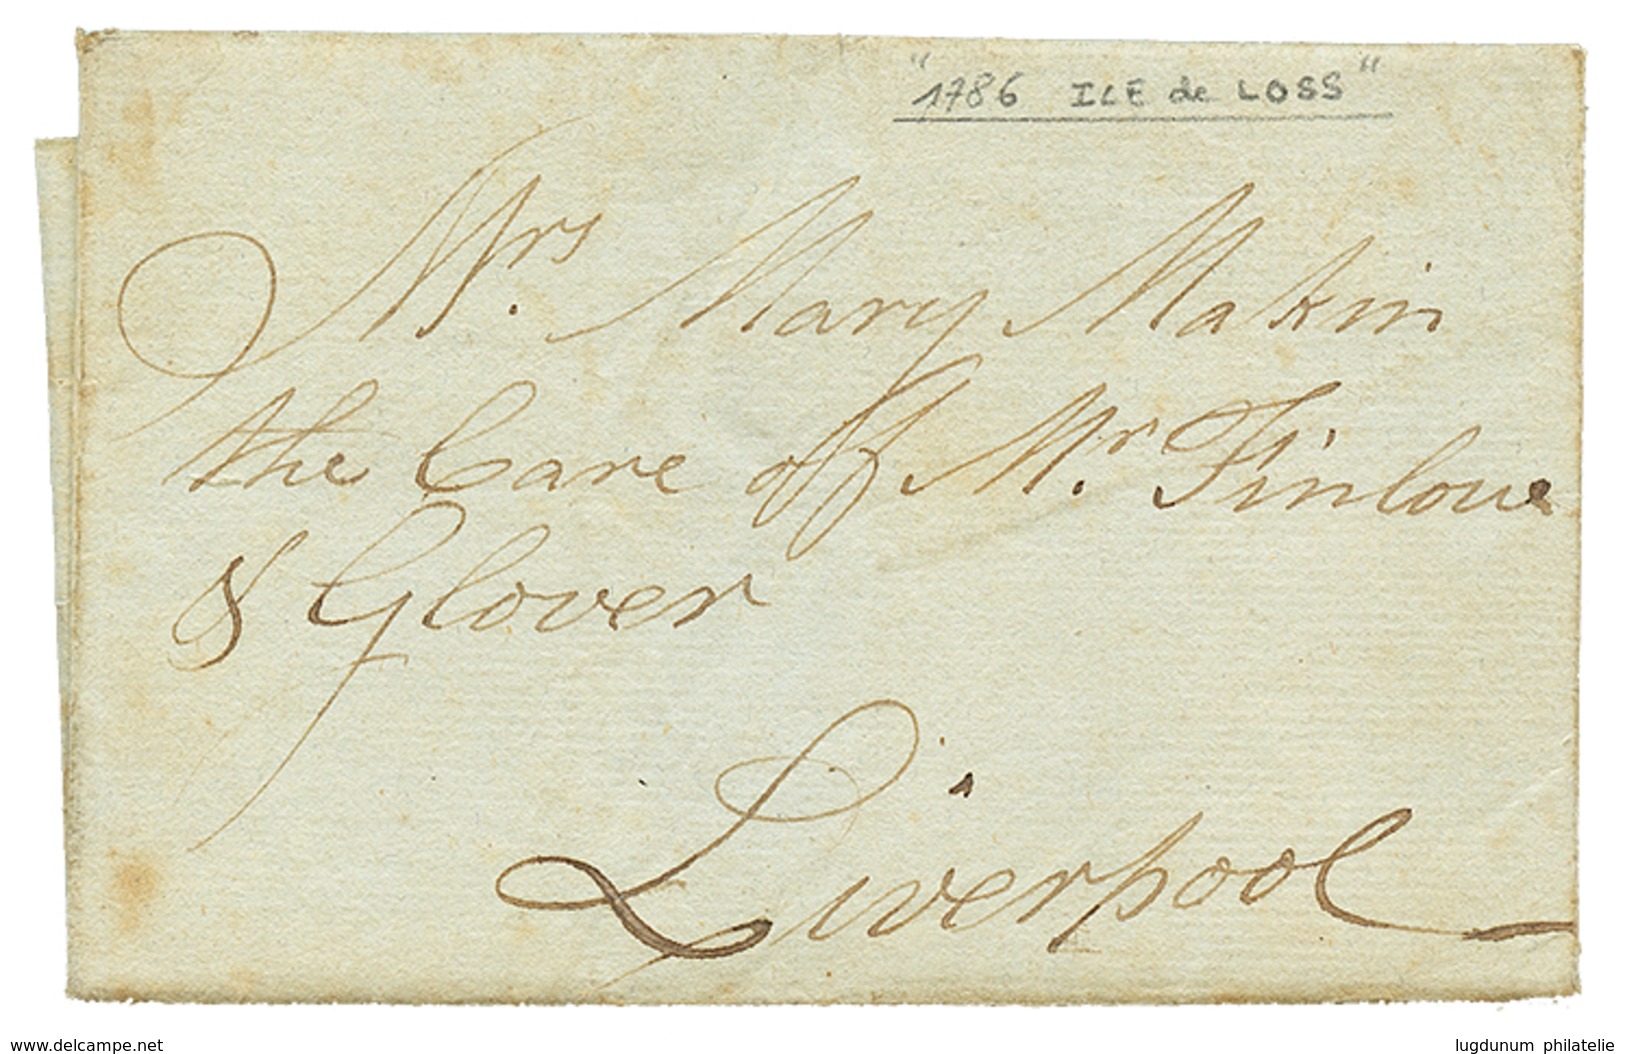 "1786 ILE de LOSS"
Mrs. Mary Makin
the Care off Mr. Finlow
& Glover
Liverpool
www.delcampe.net
lugdunum philatelie